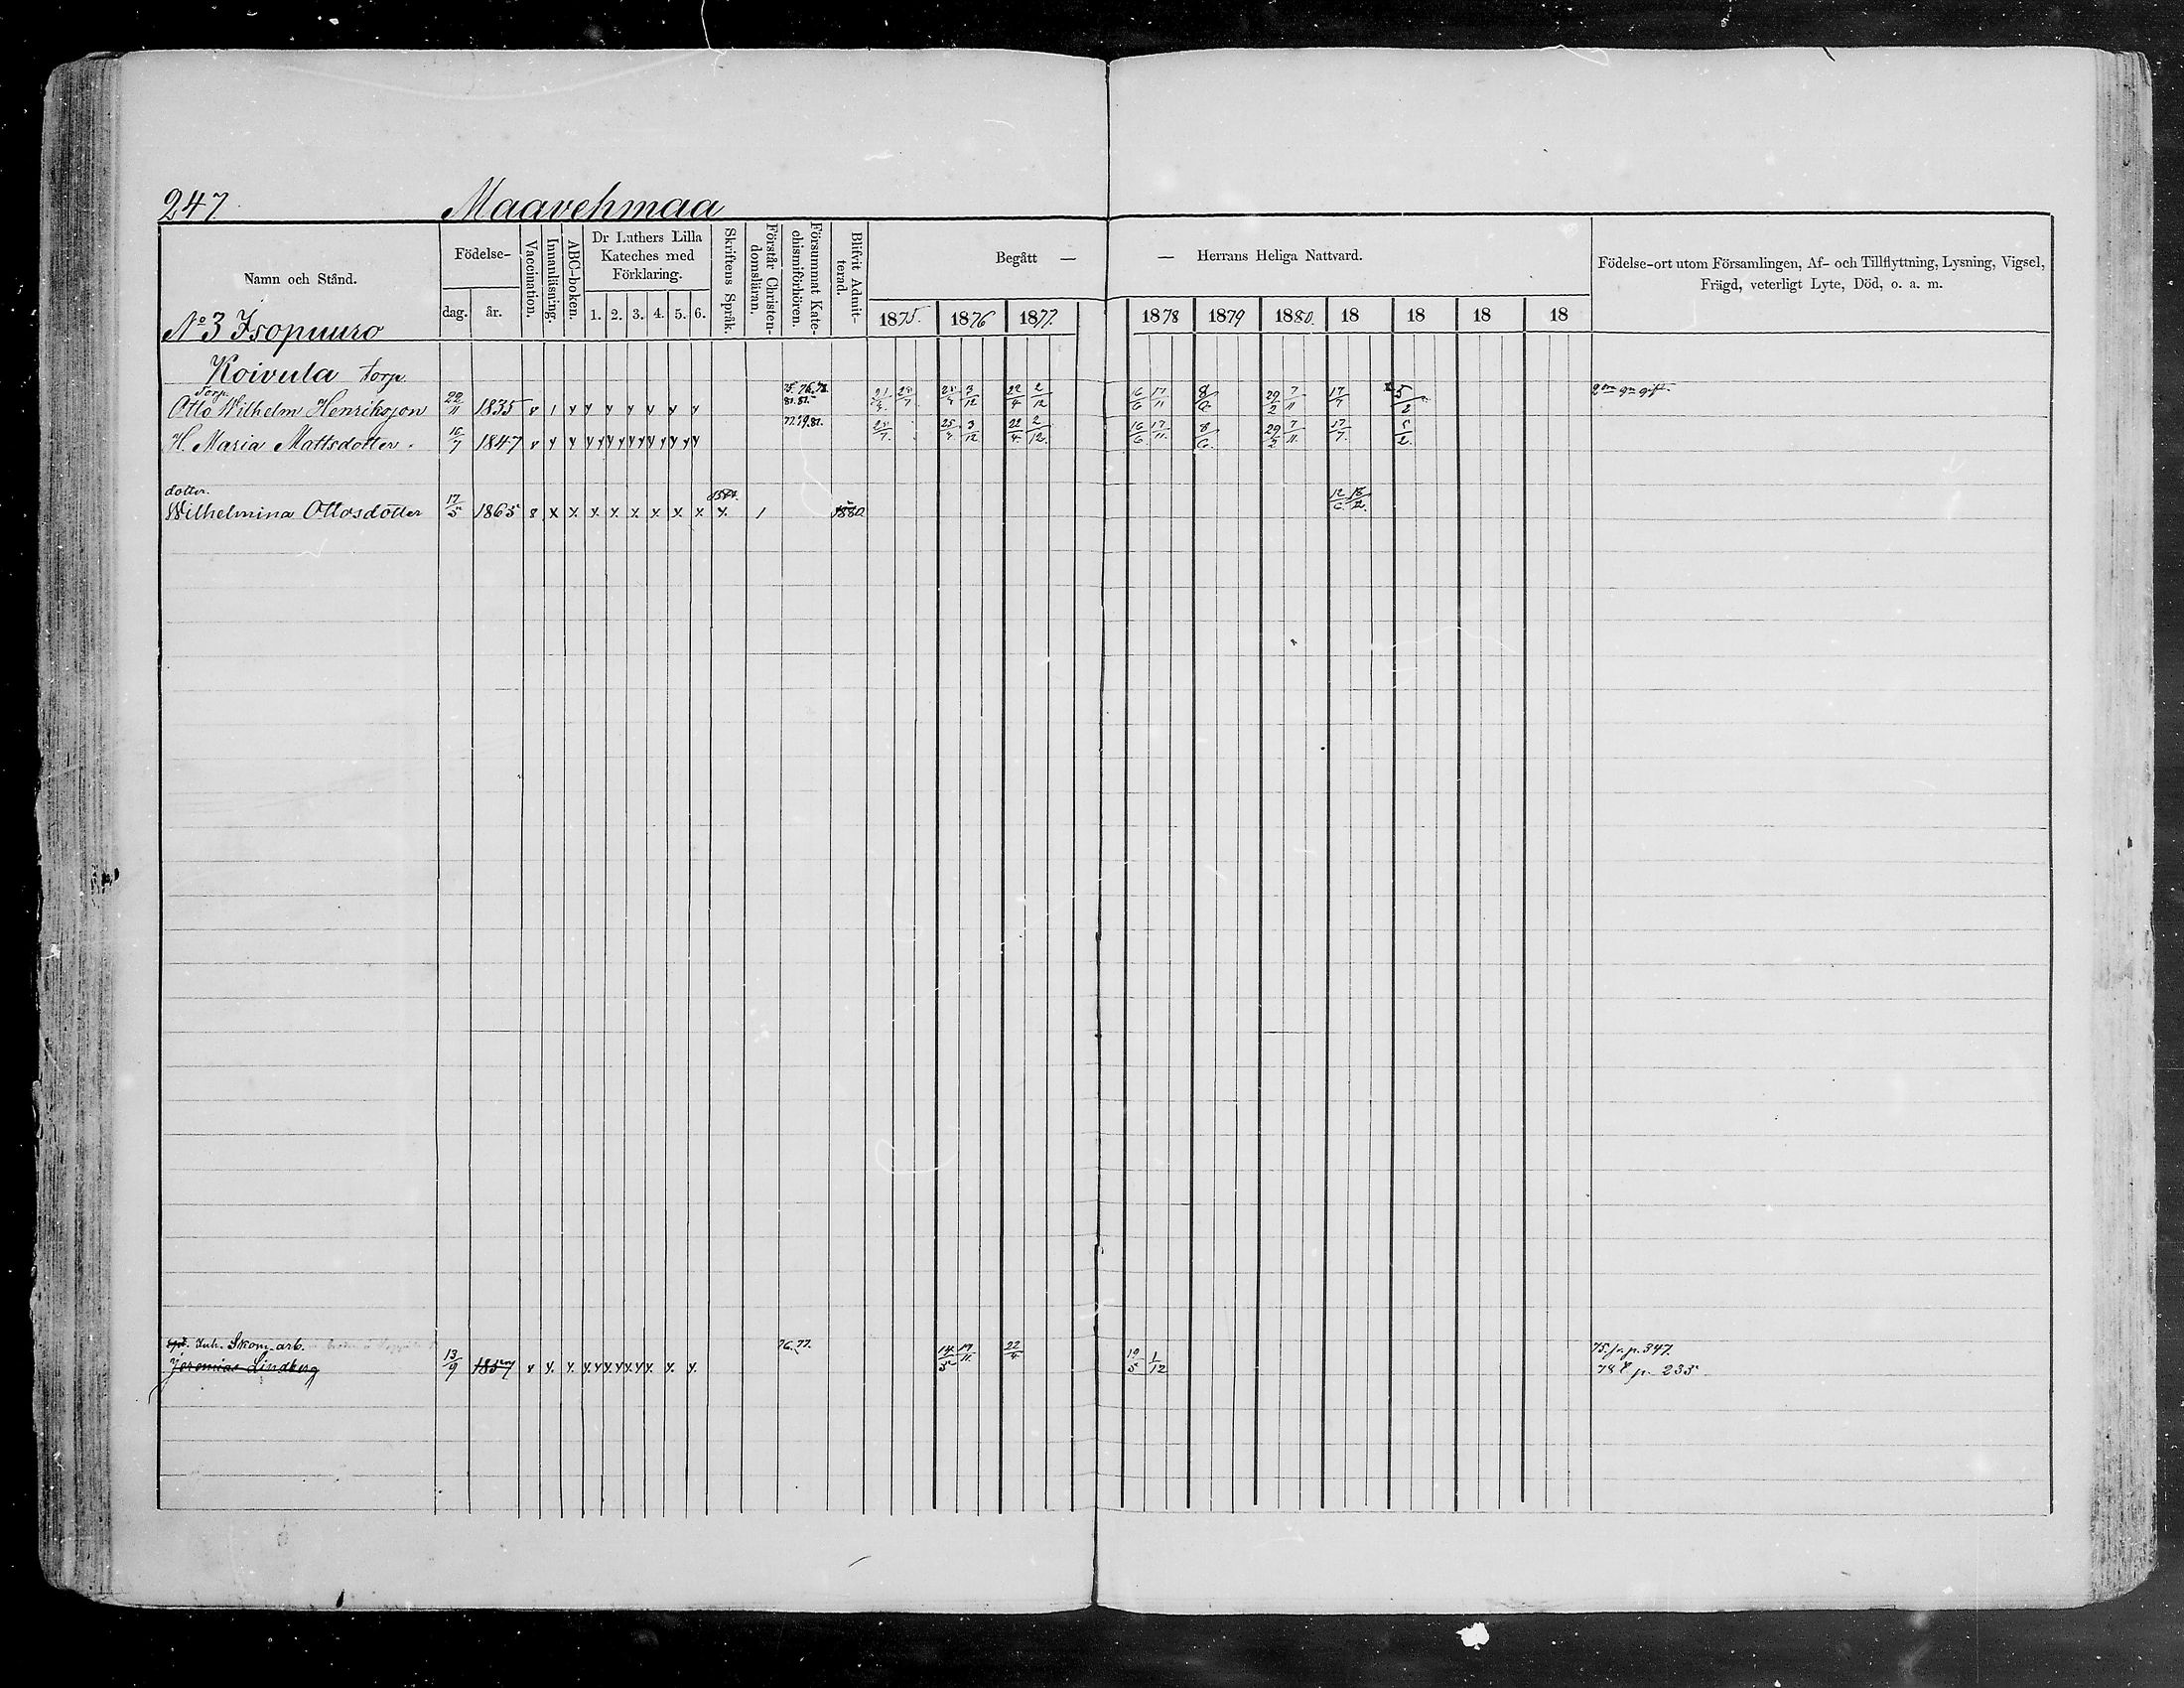 247. Maavehmaa
Namn och Stånd.
Födelse-
dag. år.
Vaccination.
Innanläsning.
ABC-boken.
Dr Luthers Lilla Kateches med Förklaring.
1. 2. 3. 4. 5. 6.
Skriftens Språk.
Förstår Christendomsläran.
Försummat Katechismiförhören.
Blifvit Admitterad.
Begått — — Herrans Heliga Nattvard.
1875. 1876 1877. 1878 1879 1880. 18 18 18 18
Födelse-ort utom Församlingen, Af- och Tillflyttning, Lysning, Vigsel,
Frägd, veterligt Lyte, Död, o. a. m.
No 3 Isopuuro
Koivula torp.
Torp.
Otto Wilhelm Henriksson 22/11 1835 25/7 3/12 22/4 2/12 16/6 17/11 8/6 29/2 7/11 17/7 5/2
H. Maria Mattsdotter. 16/7 1847 77.79.81. 25/7. 25/4. 3/12 22/4. 2/12. 16/6 17/11. 8/6. 29/2 7/11. 17/7. 5/2.
dotter.
Wilhelmina Ottosdotter 17/5 1865 1880
Inh. Skom. arb. 76.77.
Jeremias Lindberg 13/9 1857 14/5 19/11. 22/4 19/5 1/12
75 fr. p. 347.
78 t p. 235